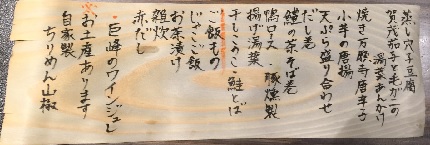 蒸し穴子豆腐
賀茂茄子と毛ガニの
湯葉あんかけ
焼き万願寺唐辛子
小芋の唐揚
天ぷら盛り合わせ
だし巻
鰻の茶そば巻
鴨ロース 豚燻製
揚げ湯葉
干しこのこ・鮭とば
ご飯もの
じゃこご飯
お茶漬け
雑炊
赤だし
巨峰のワインジュレ
お土産あります
自家製
ちりめん山椒